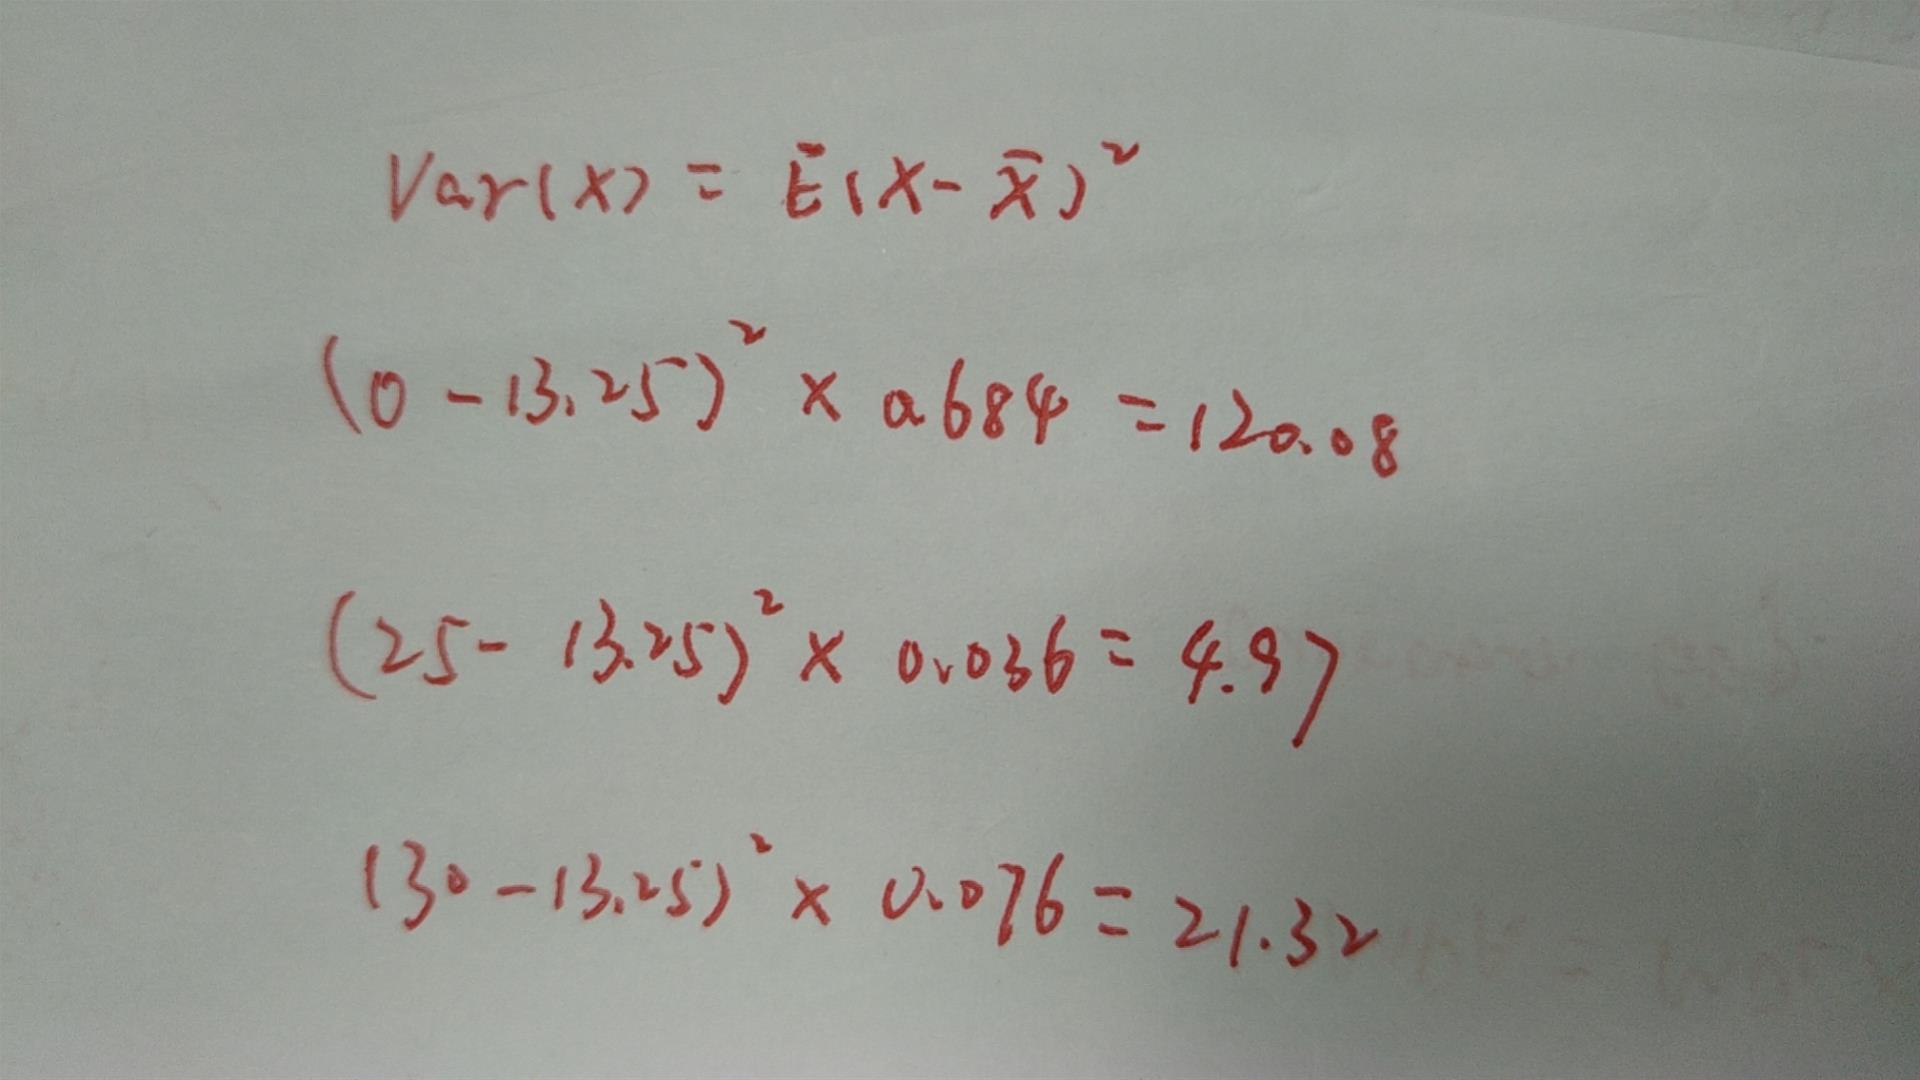 Var(X) = E(X - X̄)²
(0 - 13.25)² × 0.684 = 120.08
(25 - 13.25)² × 0.036 = 4.97
(30 - 13.25)² × 0.076 = 21.32